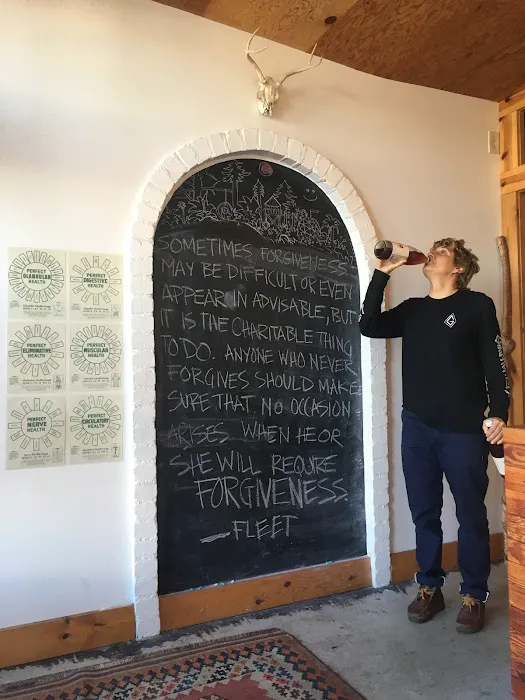 SOMETIMES FORGIVENESS
MAY BE DIFFICULT OR EVEN
APPEAR IN ADVISABLE, BUT
IT IS THE CHARITABLE THING
TO DO. ANYONE WHO NEVER
FORGIVES SHOULD MAKE
SURE THAT NO OCCASION
ARISES WHEN HE OR
SHE WILL REQUIRE
FORGIVENESS.
— FLEET
PERFECT
GLANDULAR
HEALTH
PERFECT
DIGESTIVE
HEALTH
PERFECT
ELIMINATIVE
HEALTH
PERFECT
MUSCULAR
HEALTH
PERFECT
NERVE
HEALTH
PERFECT
CIRCULATORY
HEALTH